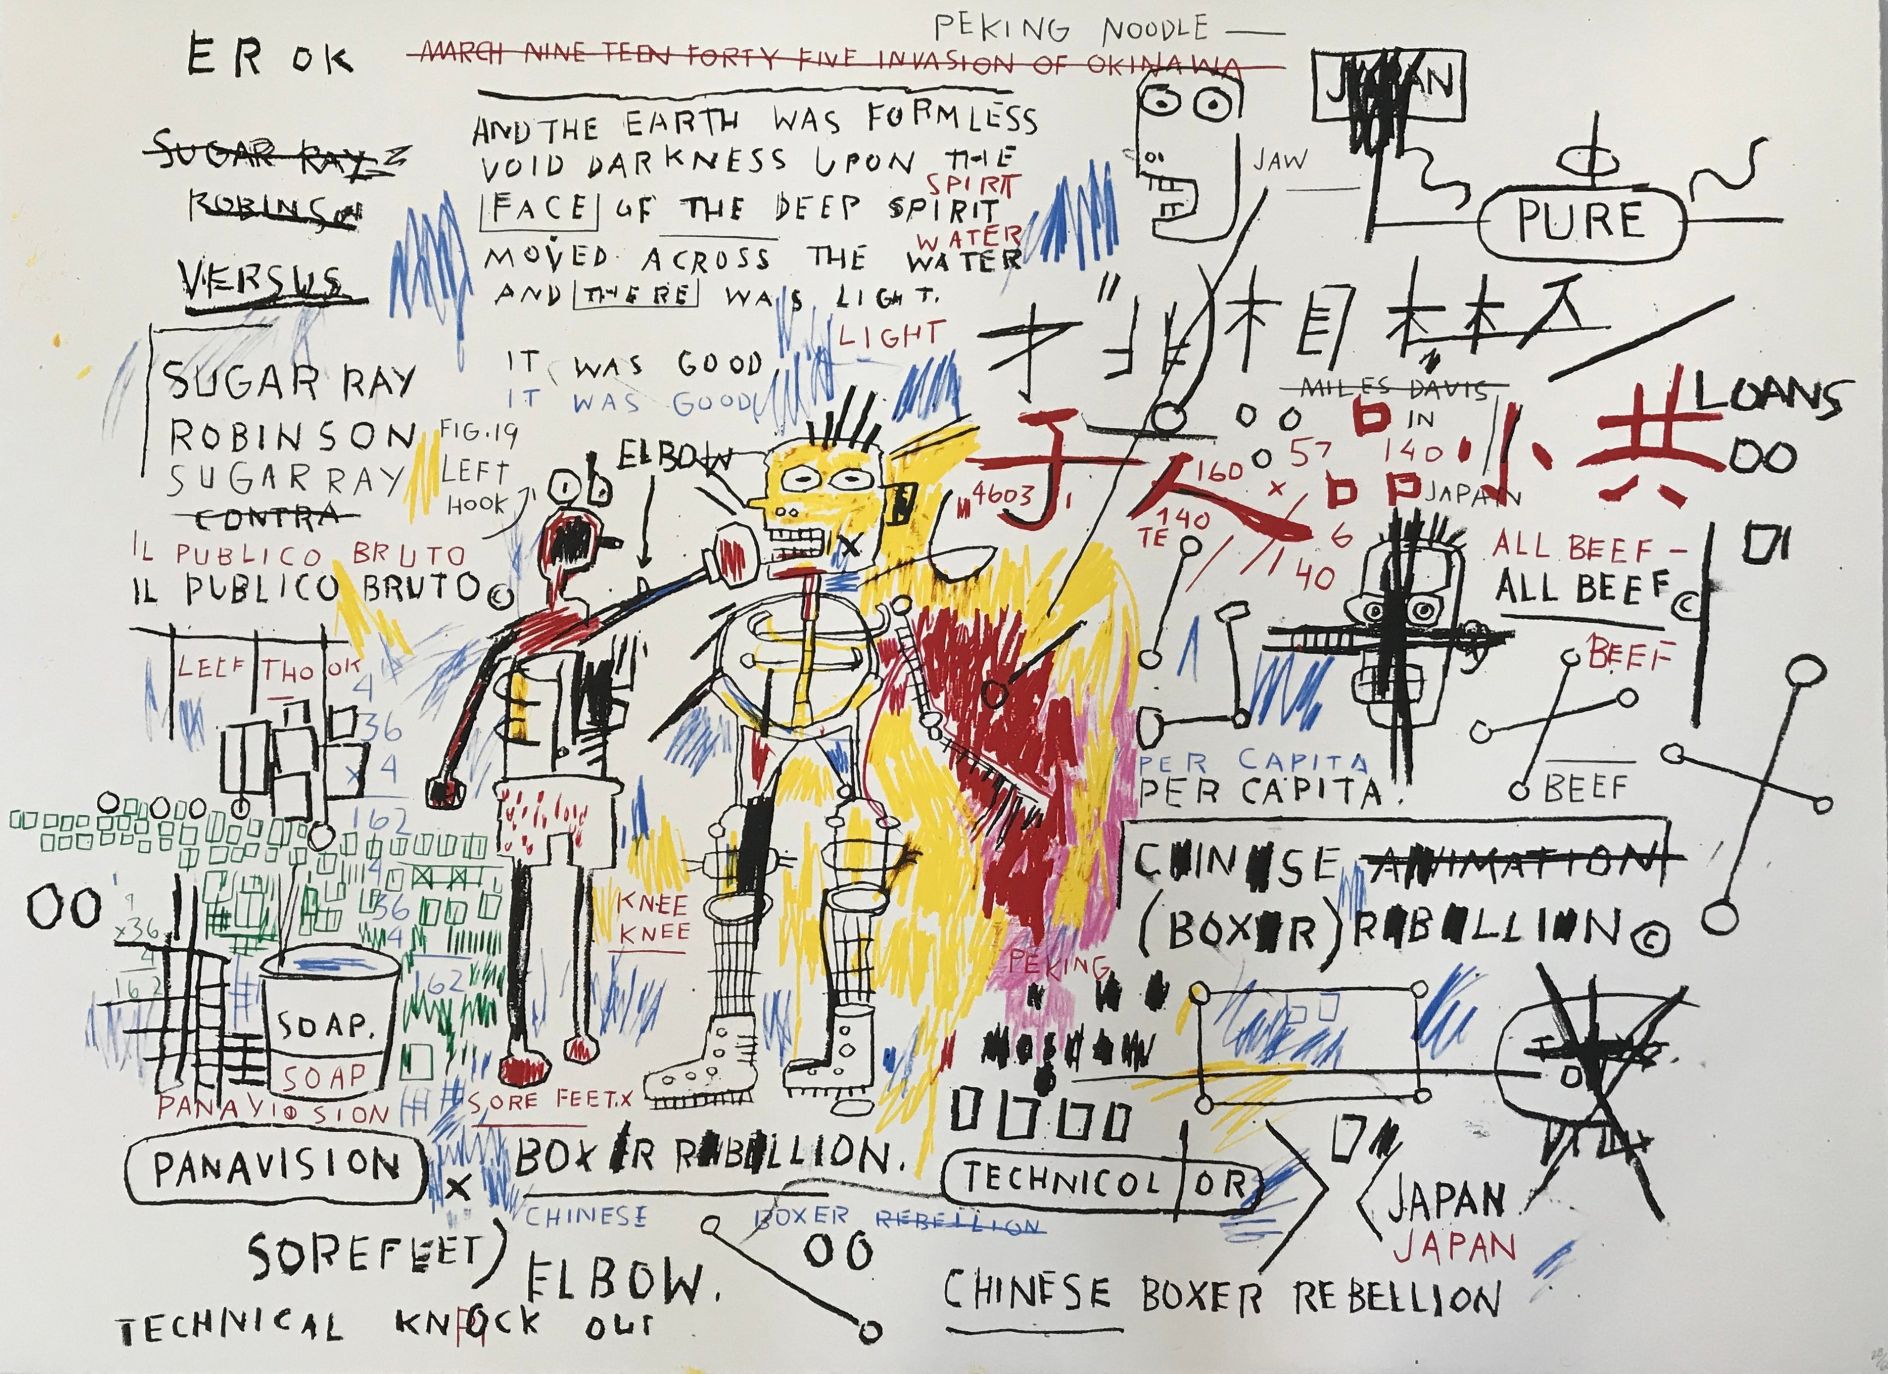 PEKING NOODLE —
EROK
MARCH NINE TEEN FORTY FIVE INVASION OF OKINAWA
JAPAN
SUGAR RAY
ROBINSON
VERSUS
AND THE EARTH WAS FORMLESS
VOID DARKNESS UPON THE
SPIRIT
FACE OF THE DEEP SPIRIT
WATER
MOVED. ACROSS THE WATER
AND THERE WAS LIGHT.
LIGHT
IT WAS GOOD
IT WAS GOOD
JAW
PURE
SUGAR RAY
ROBINSON
SUGAR RAY
CONTRA
FIG.19
LEFT
HOOK
ELBOW
IL PUBLICO BRUTO
IL PUBLICO BRUTO©
MILES DAVIS
IN
LOANS
OO
57
140
子
人
小
共
160
M 4603
x
JAPAN
140
TE
6
40
ALL BEEF –
ALL BEEF©
BEEF
BEEF
LEEF THO OK
4
36
x 4
162
4
36
4
162
OO
9
x36
4
162
KNEE
KNEE
PER CAPITA
PER CAPITA.
CHINESE ANIMATION
(BOXER) REBELLION©
PEKING
SOAP.
SOAP
PANAVISION
PANAVISION
SORE FEET.X
X
BOXER REBELLION.
CHINESE BOXER REBELLION
TECHNICOLOR
JAPAN
JAPAN
SOREFEET)
ELBOW.
OO
CHINESE BOXER REBELLION
TECHNICAL KNOCK OUT